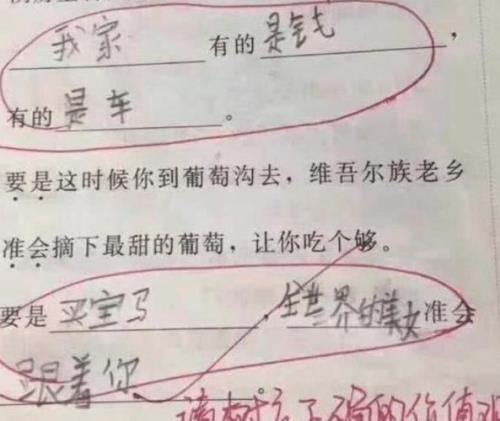 我家有的是钱,
有的是车。
要是这时候你到葡萄沟去,维吾尔族老乡
准会摘下最甜的葡萄,让你吃个够。
要是买宝马,全世界的美女准会
跟着你。
请树立正确的价值观